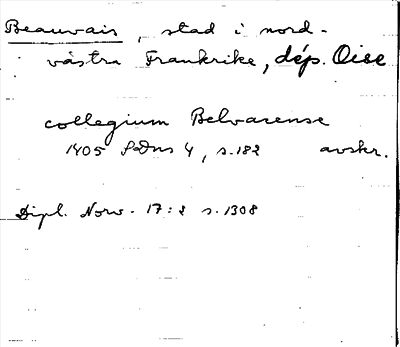 Beauvais, stad i nord-
västra Frankrike, dép. Oise
collegium Belvacense
1405 SDns 4, s. 182 avskr.
Dipl. Norv. 17:2 s. 1308